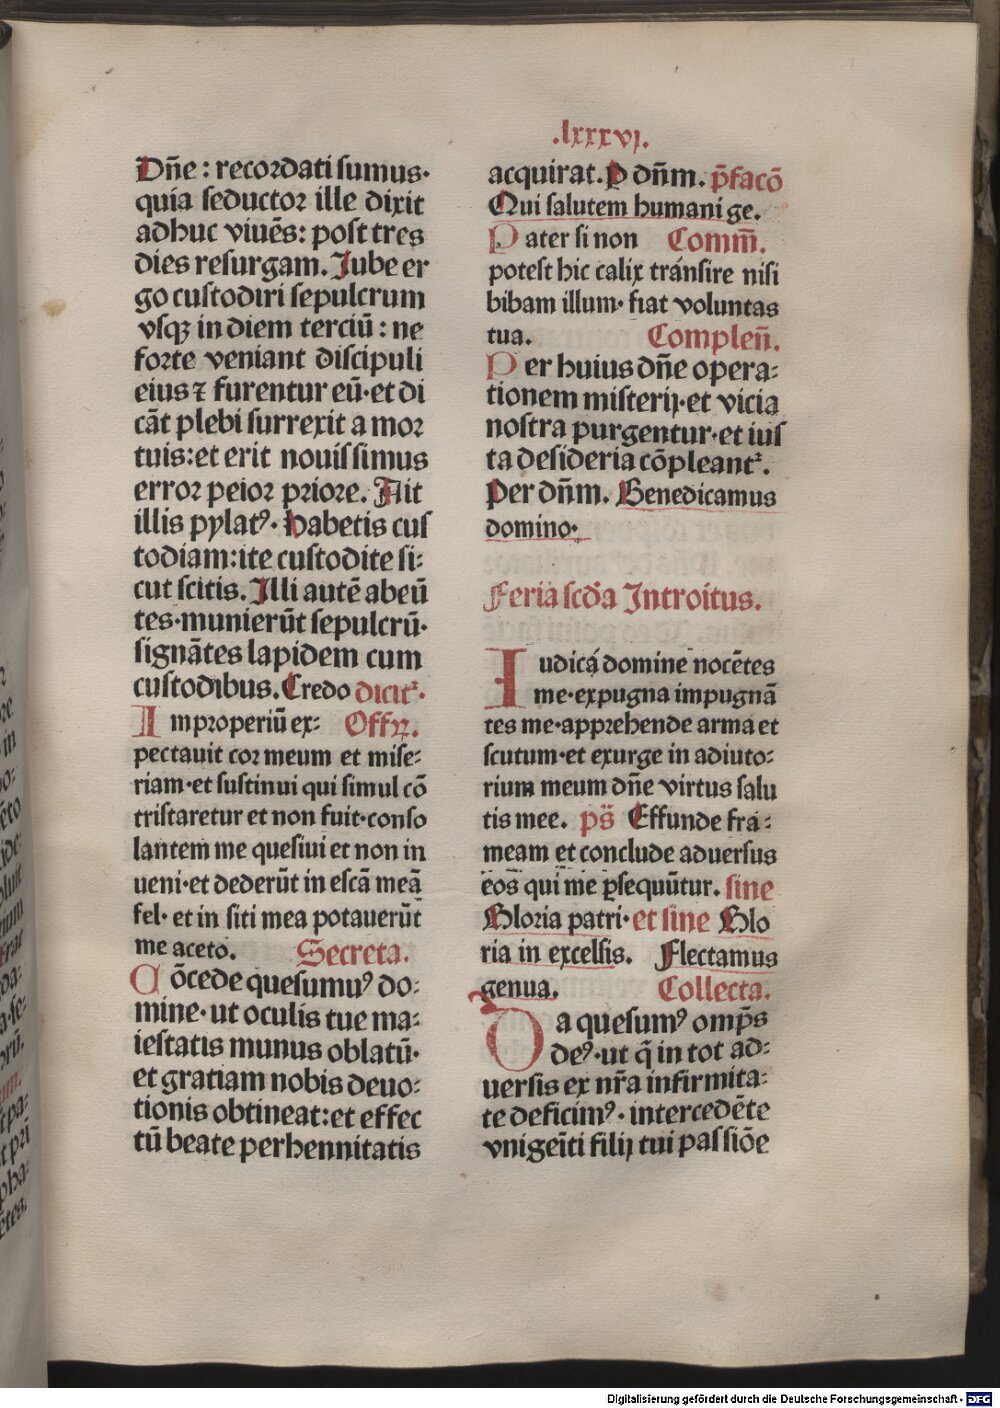 .lxxxvj.
Dn̄e : recordati sumus·
quia seductor ille dixit
adhuc viuēs: post tres
dies resurgam. Jube er
go custodiri sepulcrum
vsqꝫ in diem terciū : ne
forte veniant discipuli
eius ⁊ furentur eū·et di
cāt plebi surrexit a mor
tuis:et erit nouissimus
error peior priore. Ait
illis pylatꝰ· Habetis cus
todiam:ite custodite si:
cut scitis. Illi autē abeū
tes·munierūt sepulcrū·
signātes lapidem cum
custodibus. Credo dicit᷑·
Improperiū ex: Offꝝ.
pectauit cor meum et mise:
riam·et sustinui qui simul cō
tristaretur et non fuit·conso
lantem me quesiui et non in
ueni·et dederūt in escā meā
fel· et in siti mea potauerūt
me aceto. Secreta.
Cōcede quesumuꝰ do:
mine· ut oculis tue ma:
iestatis munus oblatū·
et gratiam nobis deuo:
tionis obtineat:et effec
tū beate perhennitatis
acquirat. P dn̄m. p̄facō
Qui salutem humani ge.
Pater si non Comm̄.
potest hic calix transire nisi
bibam illum· fiat voluntas
tua. Complen̄.
Per huius dn̄e opera:
tionem misterij·et vicia
nostra purgentur·et ius
ta desideria cōpleant᷑.
Per dn̄m. Benedicamus
domino·
Feria scd̄a Introitus.
Iudica domine nocētes
me·expugna impugnā
tes me·apprehende arma et
scutum·et exurge in adiuto:
rium meum dn̄e virtus salu
tis mee. ps̄ Effunde fra:
meam et conclude aduersus
eos qui me ꝑsequūtur. sine
Gloria patri· et sine Glo
ria in excelsis. Flectamus
genua. Collecta.
Da quesumꝰ omp̄s
deꝰ·ut q̄ in tot ad:
uersis ex nr̄a infirmita:
te deficimꝰ· intercedēte
vnigeīti filij tui passiōe
Digitalisierung gefördert durch die Deutsche Forschungsgemeinschaft - DFG